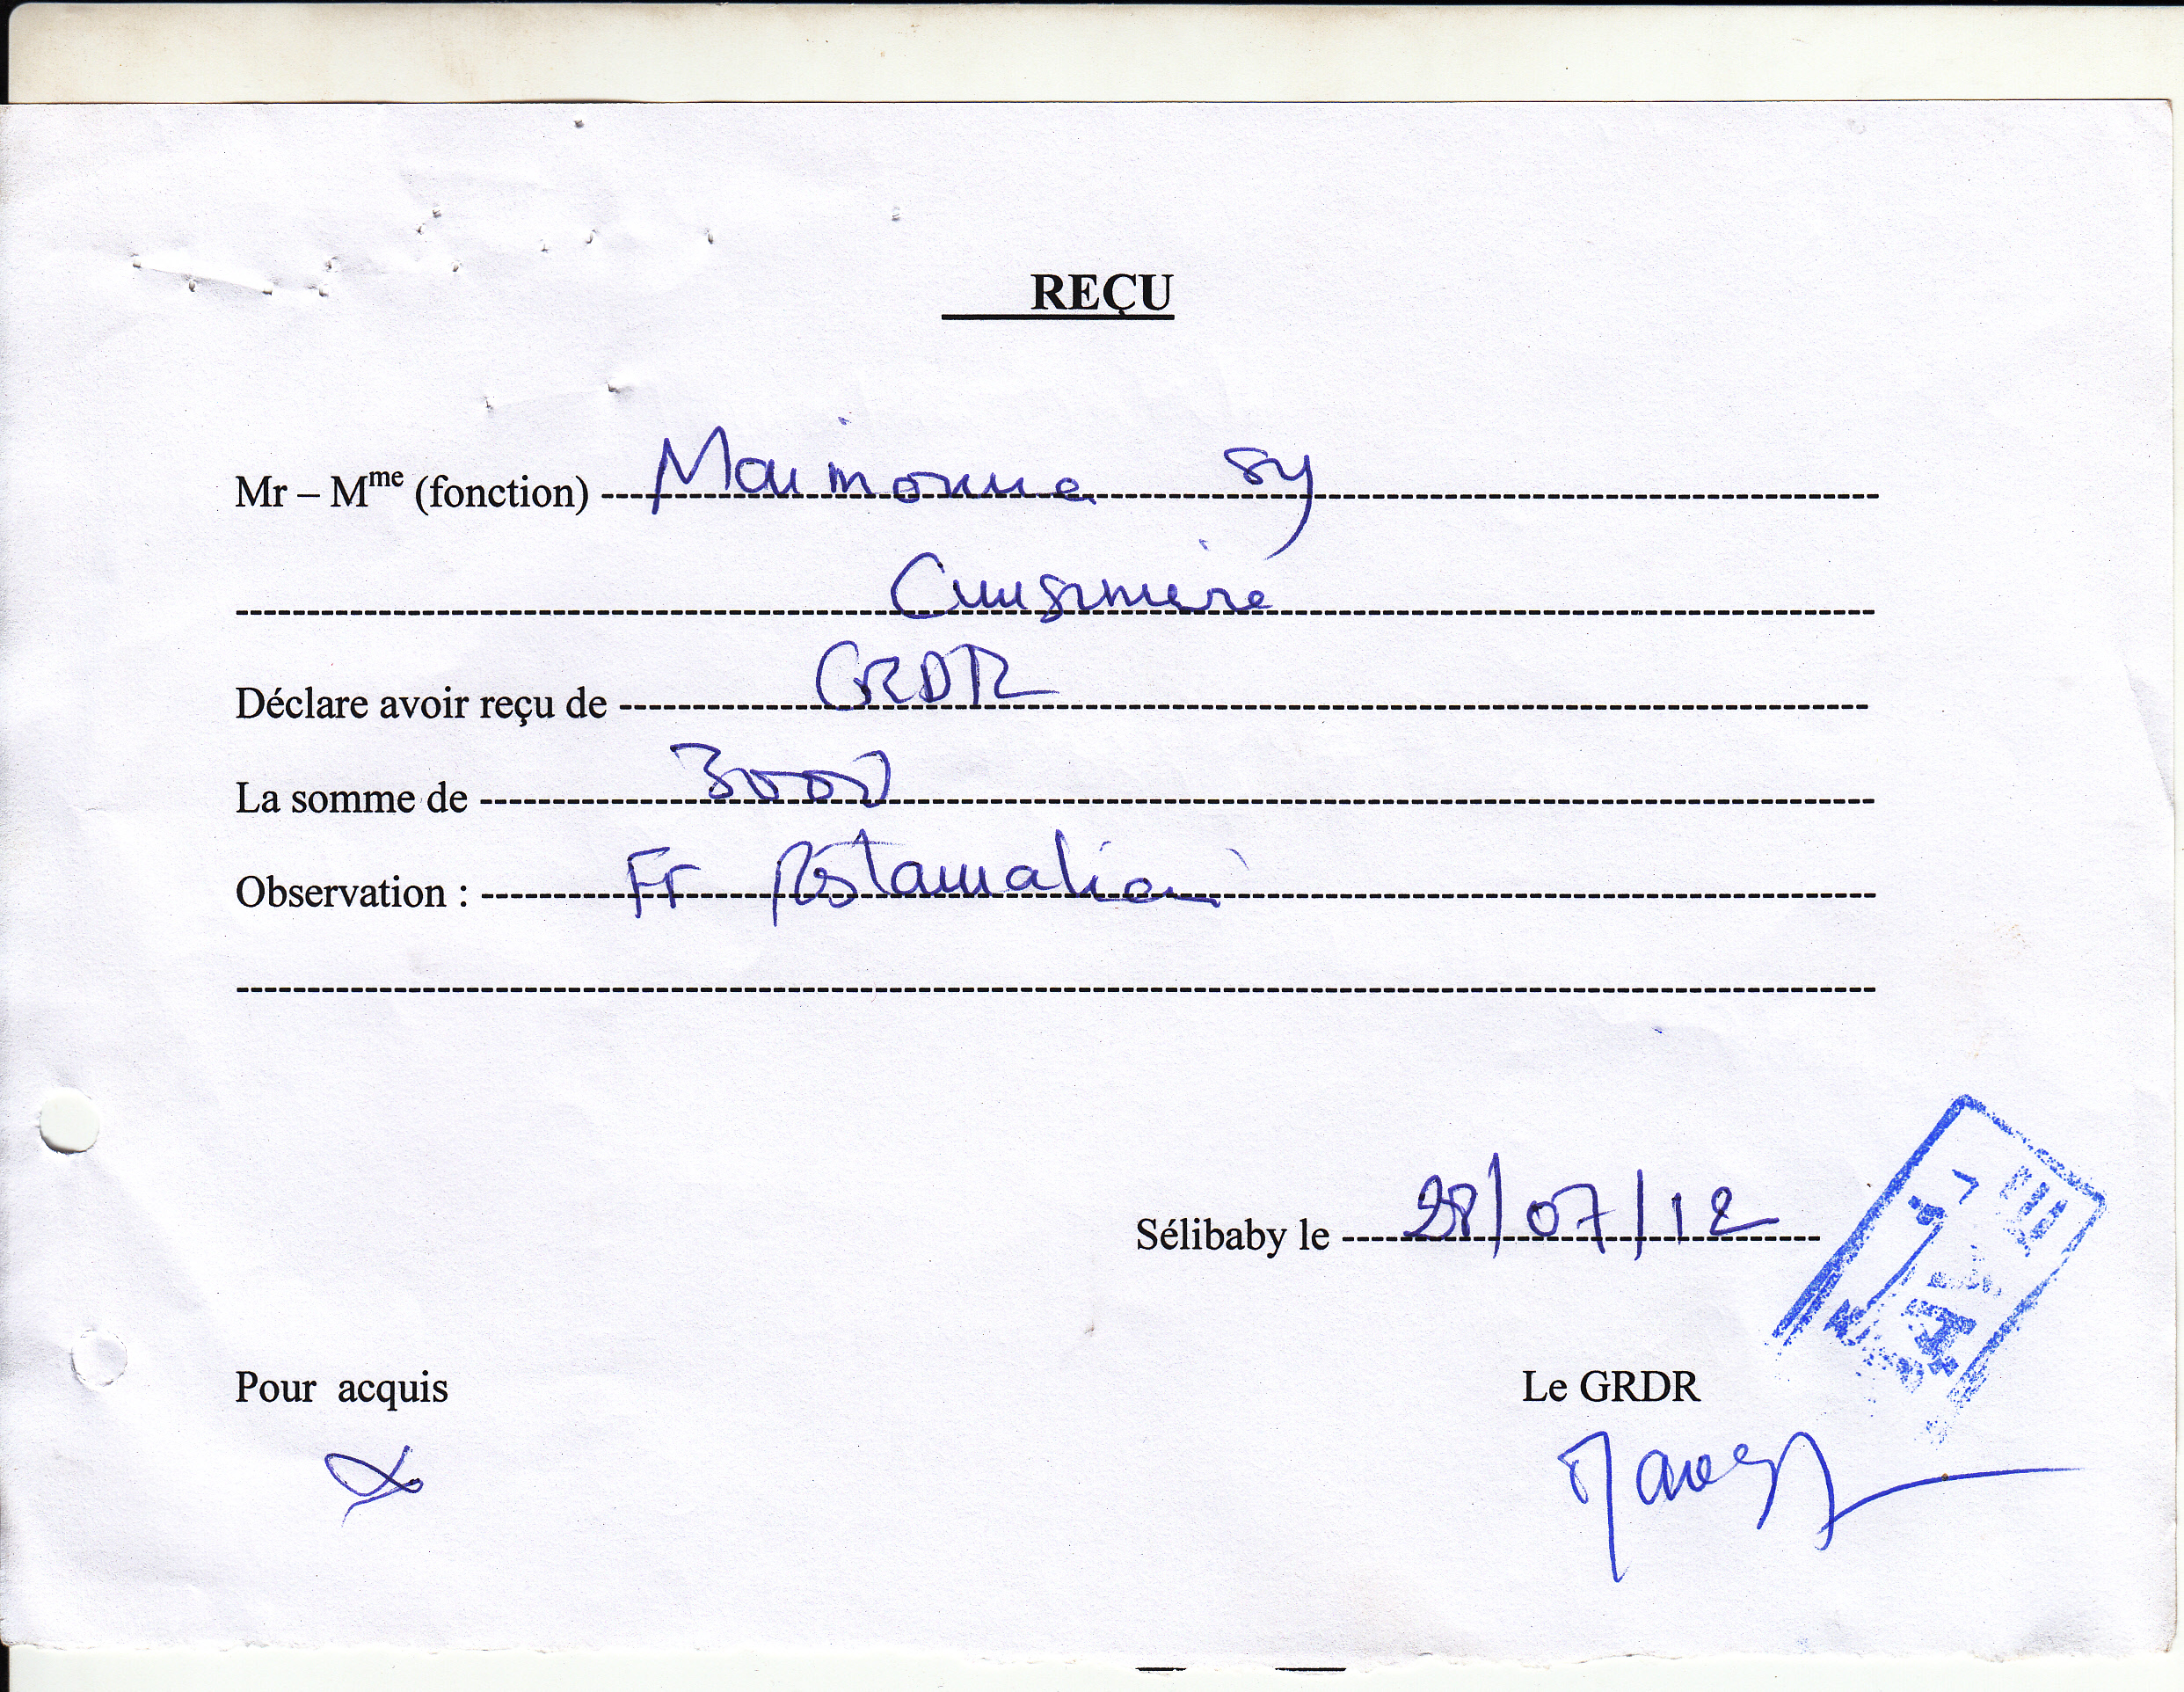 REÇU
Mr – Mme (fonction) Maimouna Sy
Cuisinière
Déclare avoir reçu de GRDR
La somme de 3000
Observation : Fr Restauration
Sélibaby le 28/07/12
Pour acquis
Le GRDR